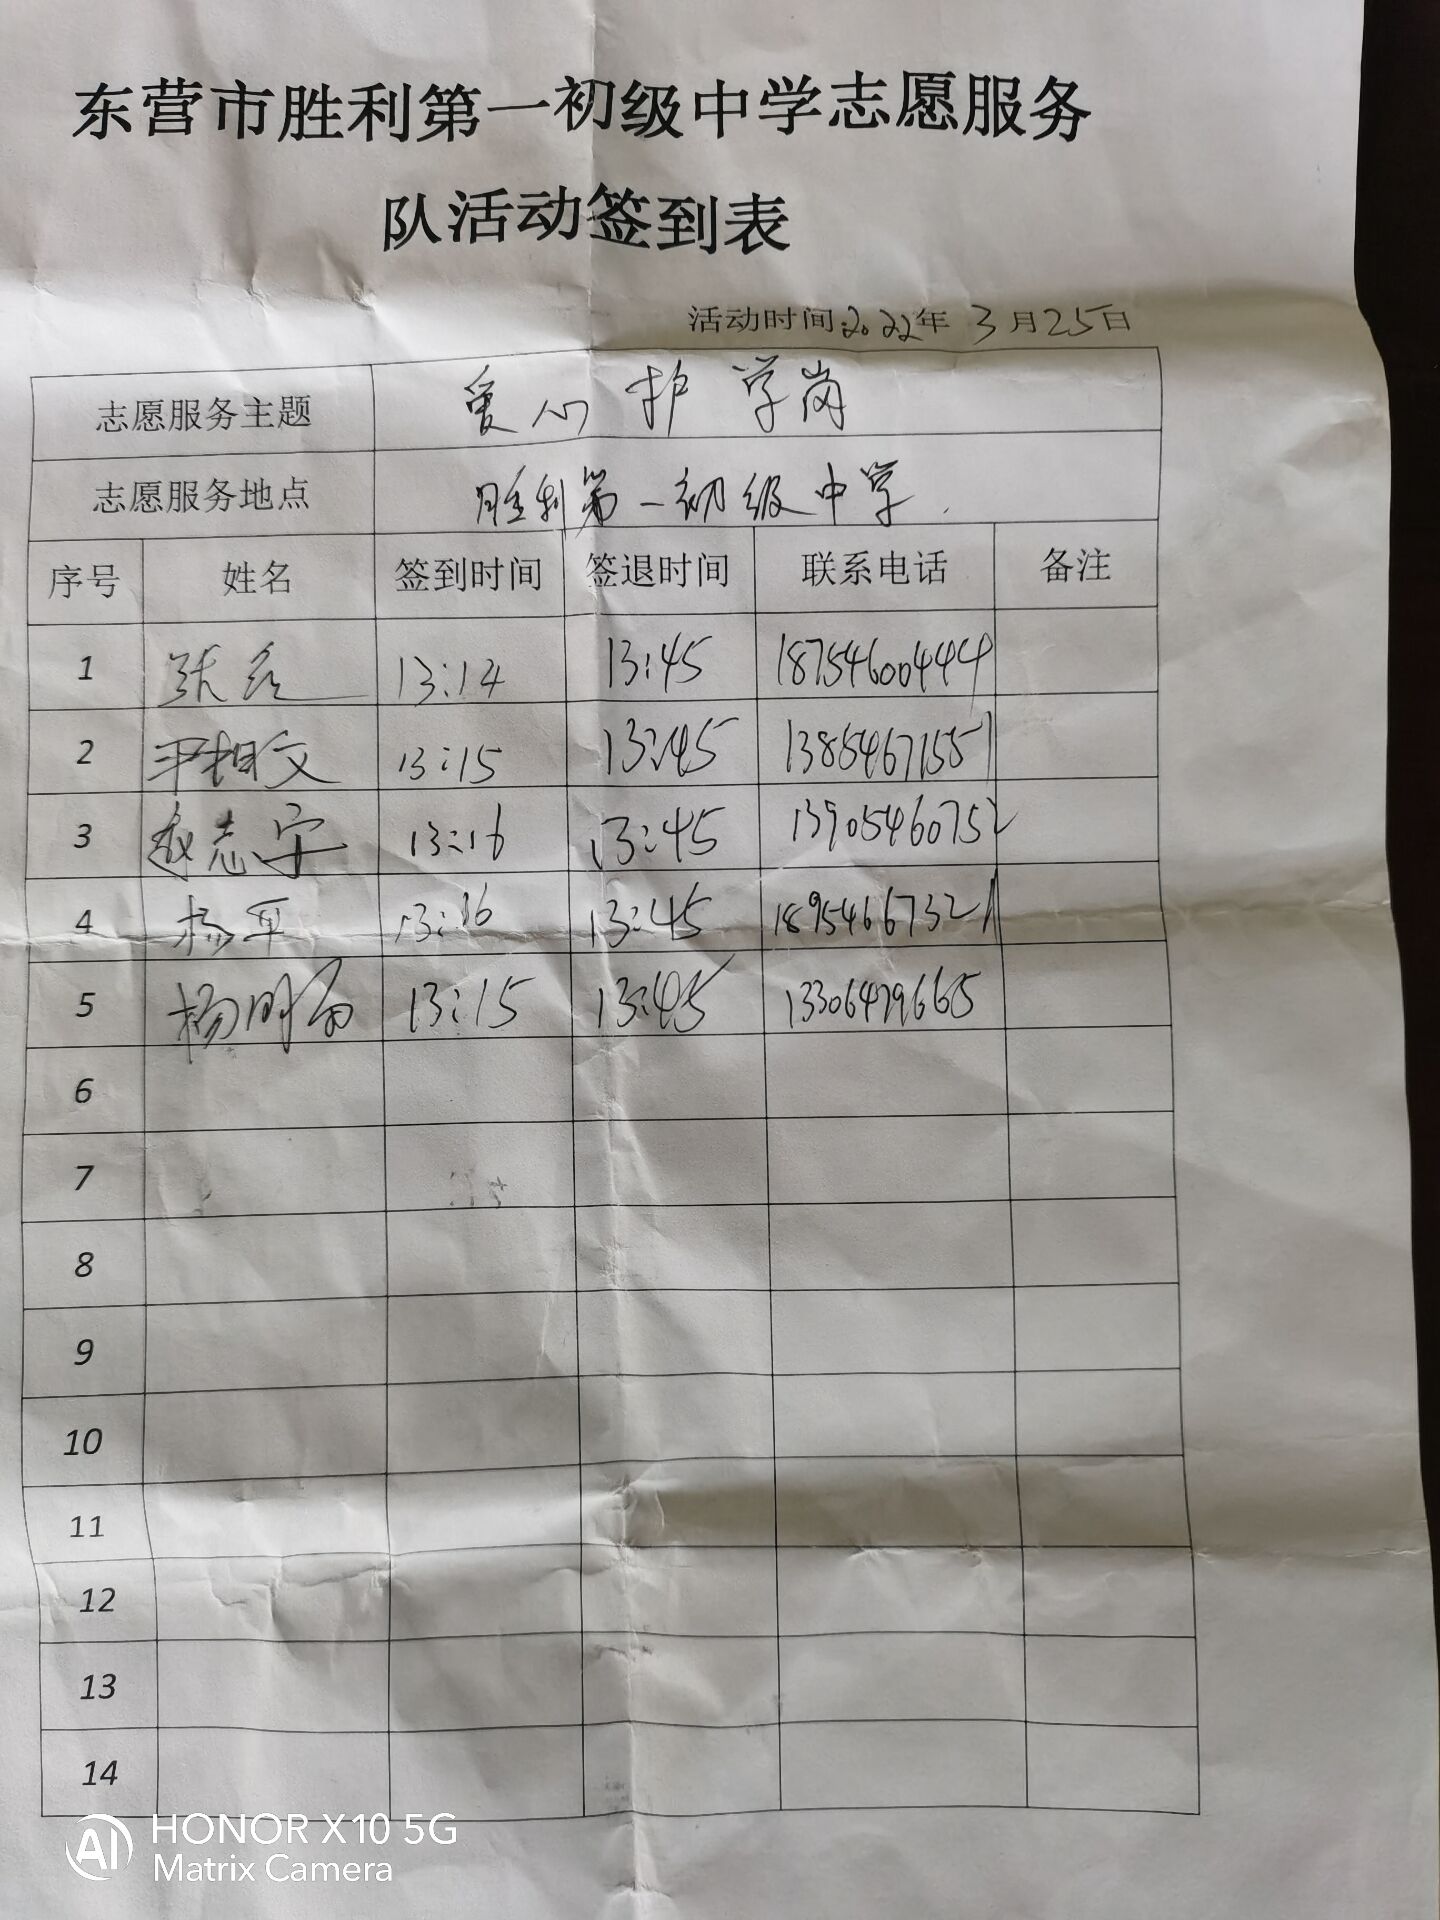 东营市胜利第一初级中学志愿服务
队活动签到表
活动时间:2022年 3月25日
志愿服务主题 爱心护学岗
志愿服务地点 胜利第一初级中学.
序号 姓名 签到时间 签退时间 联系电话 备注
1 13:14 13:45 18754600444
2 13:15 13:45 13854671551
3 赵志宇 13:16 13:45 13905460752
4 杨军 13:16 13:45 18954667321
5 杨明 13:15 13:45 13306479665
6
7
8
9
10
11
12
13
14
AI HONOR X10 5G
Matrix Camera